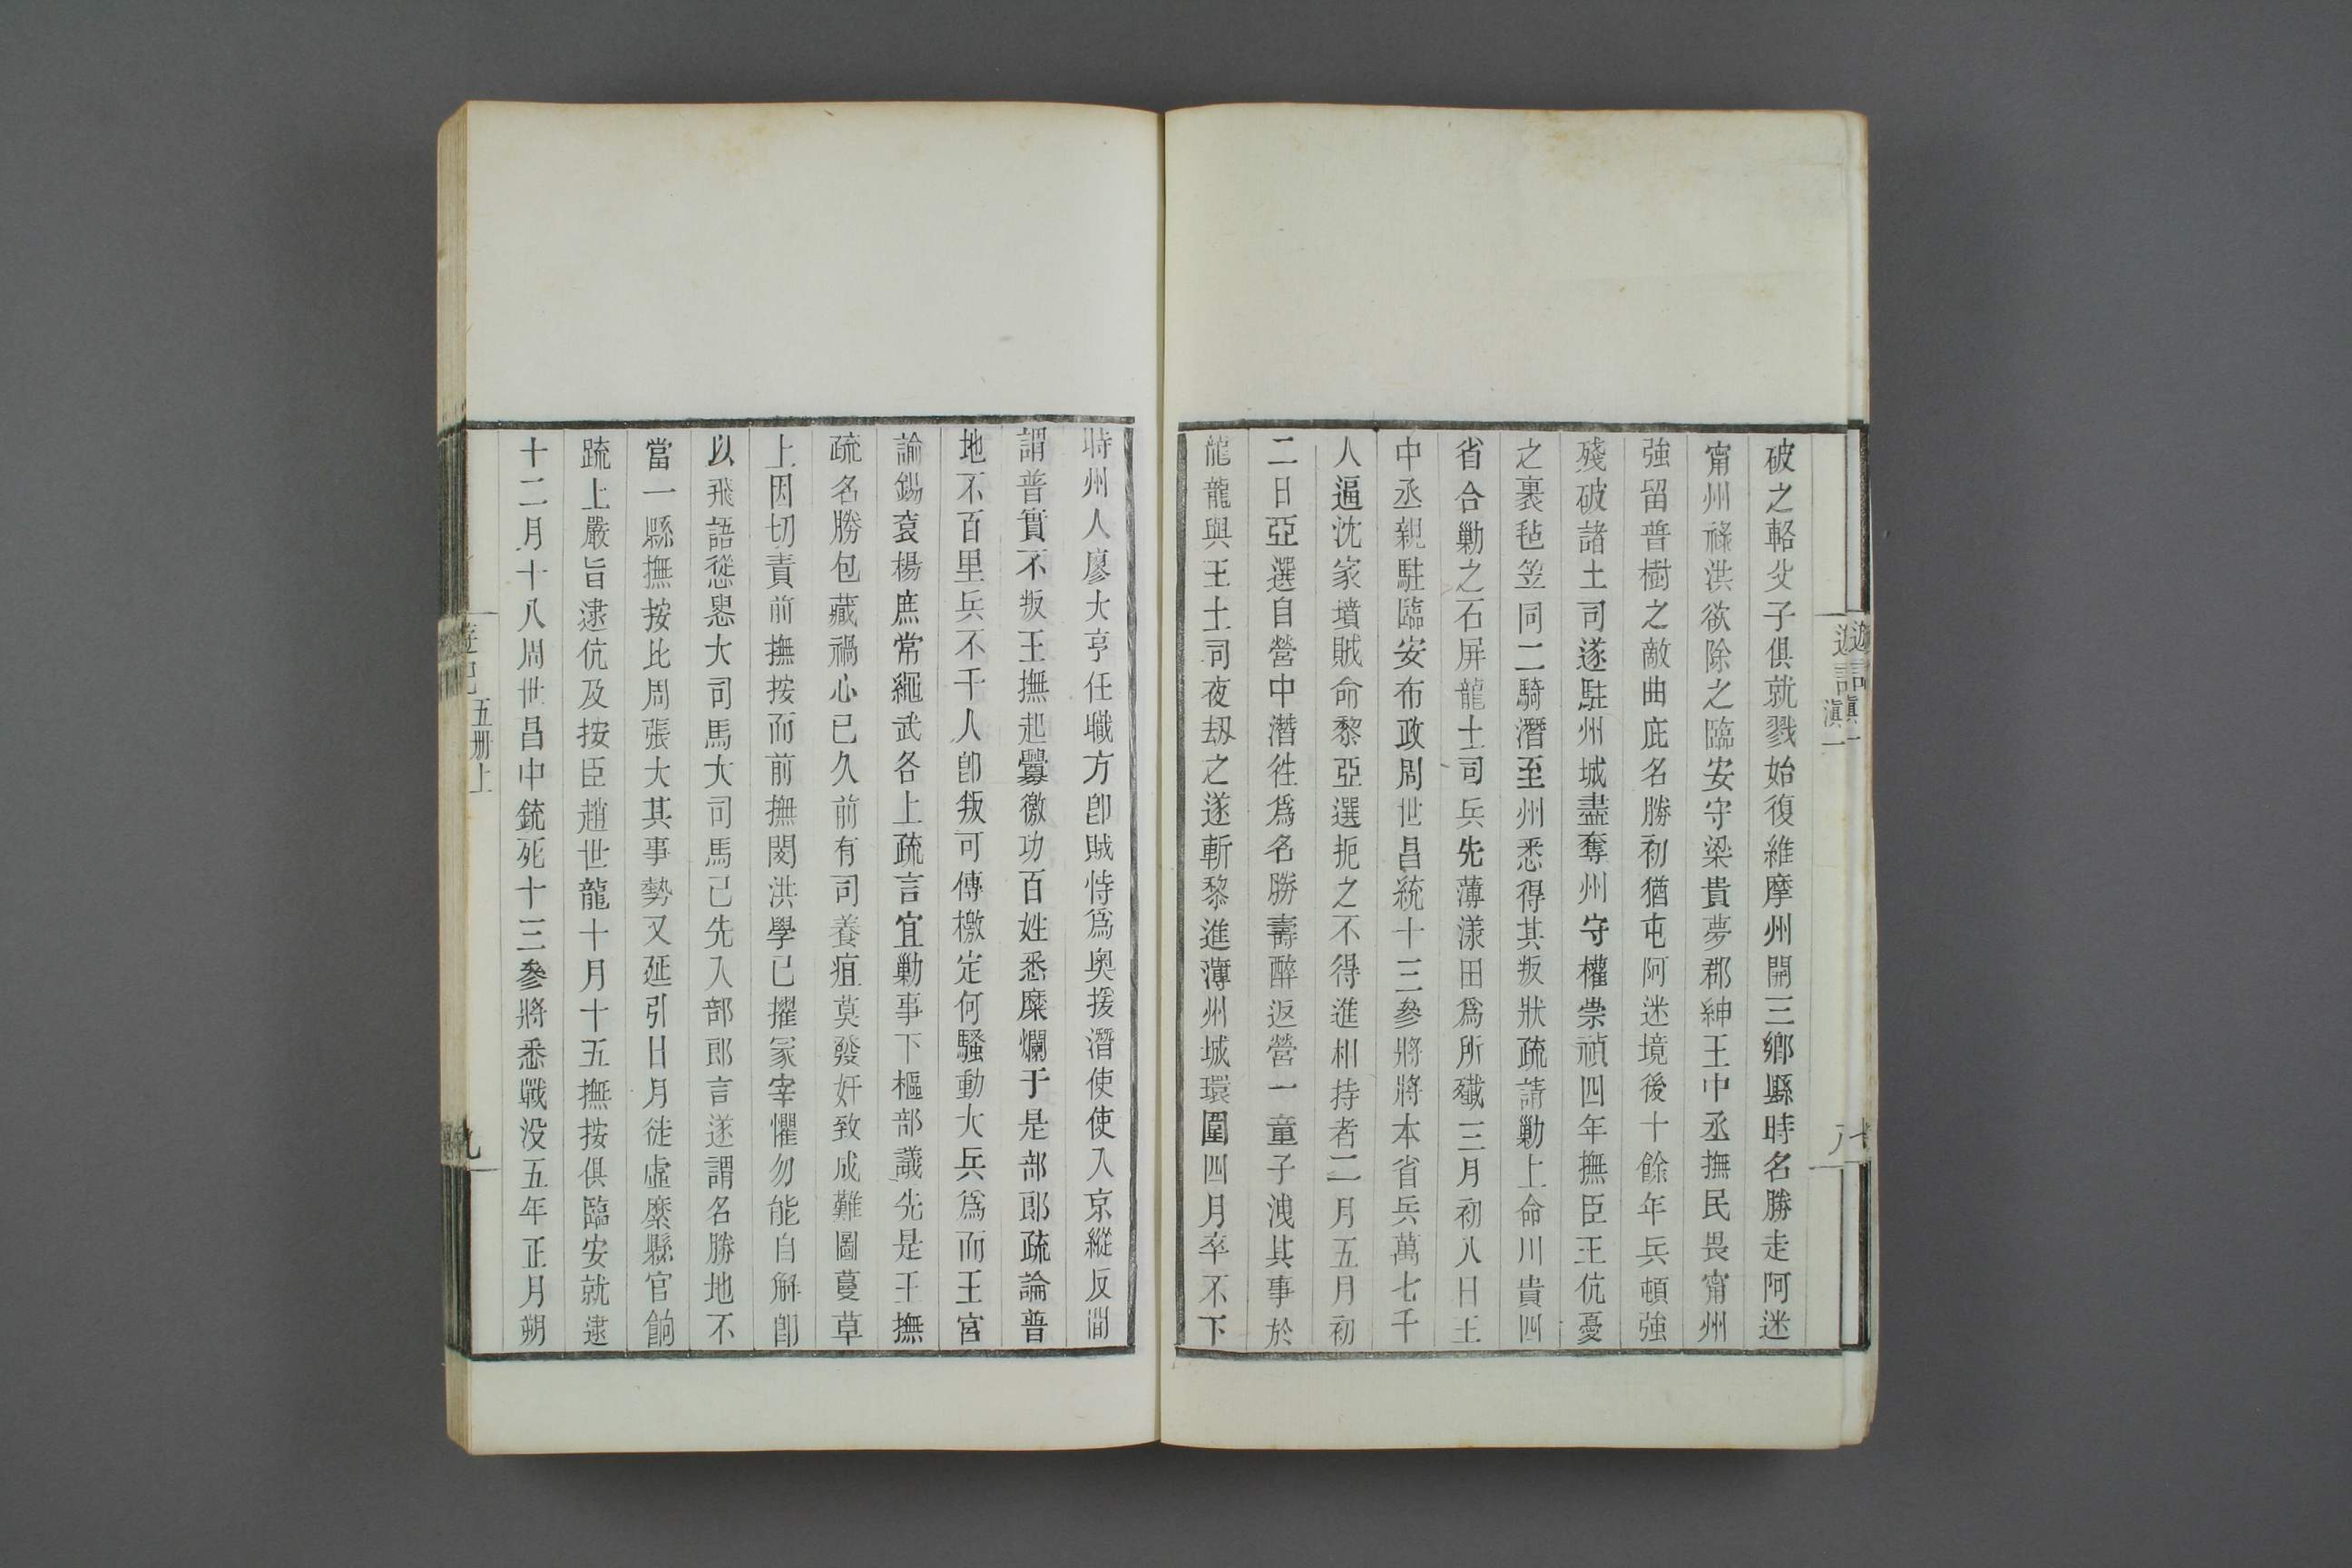 破之輅父子俱就戮始復維摩州開三鄉縣時名勝走阿迷
甯州祿洪欲除之臨安守梁貴夢郡紳王中丞撫民畏甯州
強留普樹之敵曲庇名勝初猶屯阿迷境後十餘年兵頓強
殘破諸土司遂駐州城盡奪州守權崇禎四年撫臣王伉憂
之裹毡笠同二騎潛至州悉得其叛狀疏請勦上命川貴四
省合勦之石屏龍土司兵先薄漾田爲所殲三月初八日王
中丞親駐臨安布政周世昌統十三參將將本省兵萬七千
人逼沈家墳賊命黎亞選扼之不得進相持者二月五月初
二日亞選自營中潛徃爲名勝壽醉返營一童子洩其事於
龍龍與王土司夜刼之遂斬黎進薄州城環圍四月卒不下
時州人廖大亨任職方卽賊恃爲奧援潛使使入京縱反間
謂普實不叛王撫起釁徼功百姓悉糜爛于是部郎疏論普
地不百里兵不千人卽叛可傳檄定何騷動大兵爲而王宮
諭錫袞楊庶常繩武各上疏言宜勦事下樞部議先是王撫
疏名勝包藏禍心已久前有司養疽莫發奸致成難圖蔓草
上因切責前撫按而前撫閔洪學已擢冢宰懼勿能自解卽
以飛語慫慂大司馬大司馬已先入部郎言遂謂名勝地不
當一縣撫按比周張大其事勢又延引日月徒虛縻縣官餉
疏上嚴旨逮伉及按臣趙世龍十月十五撫按俱臨安就逮
十二月十八周世昌中銃死十三參將悉戰没五年正月朔
遊記
滇一
五册上
九